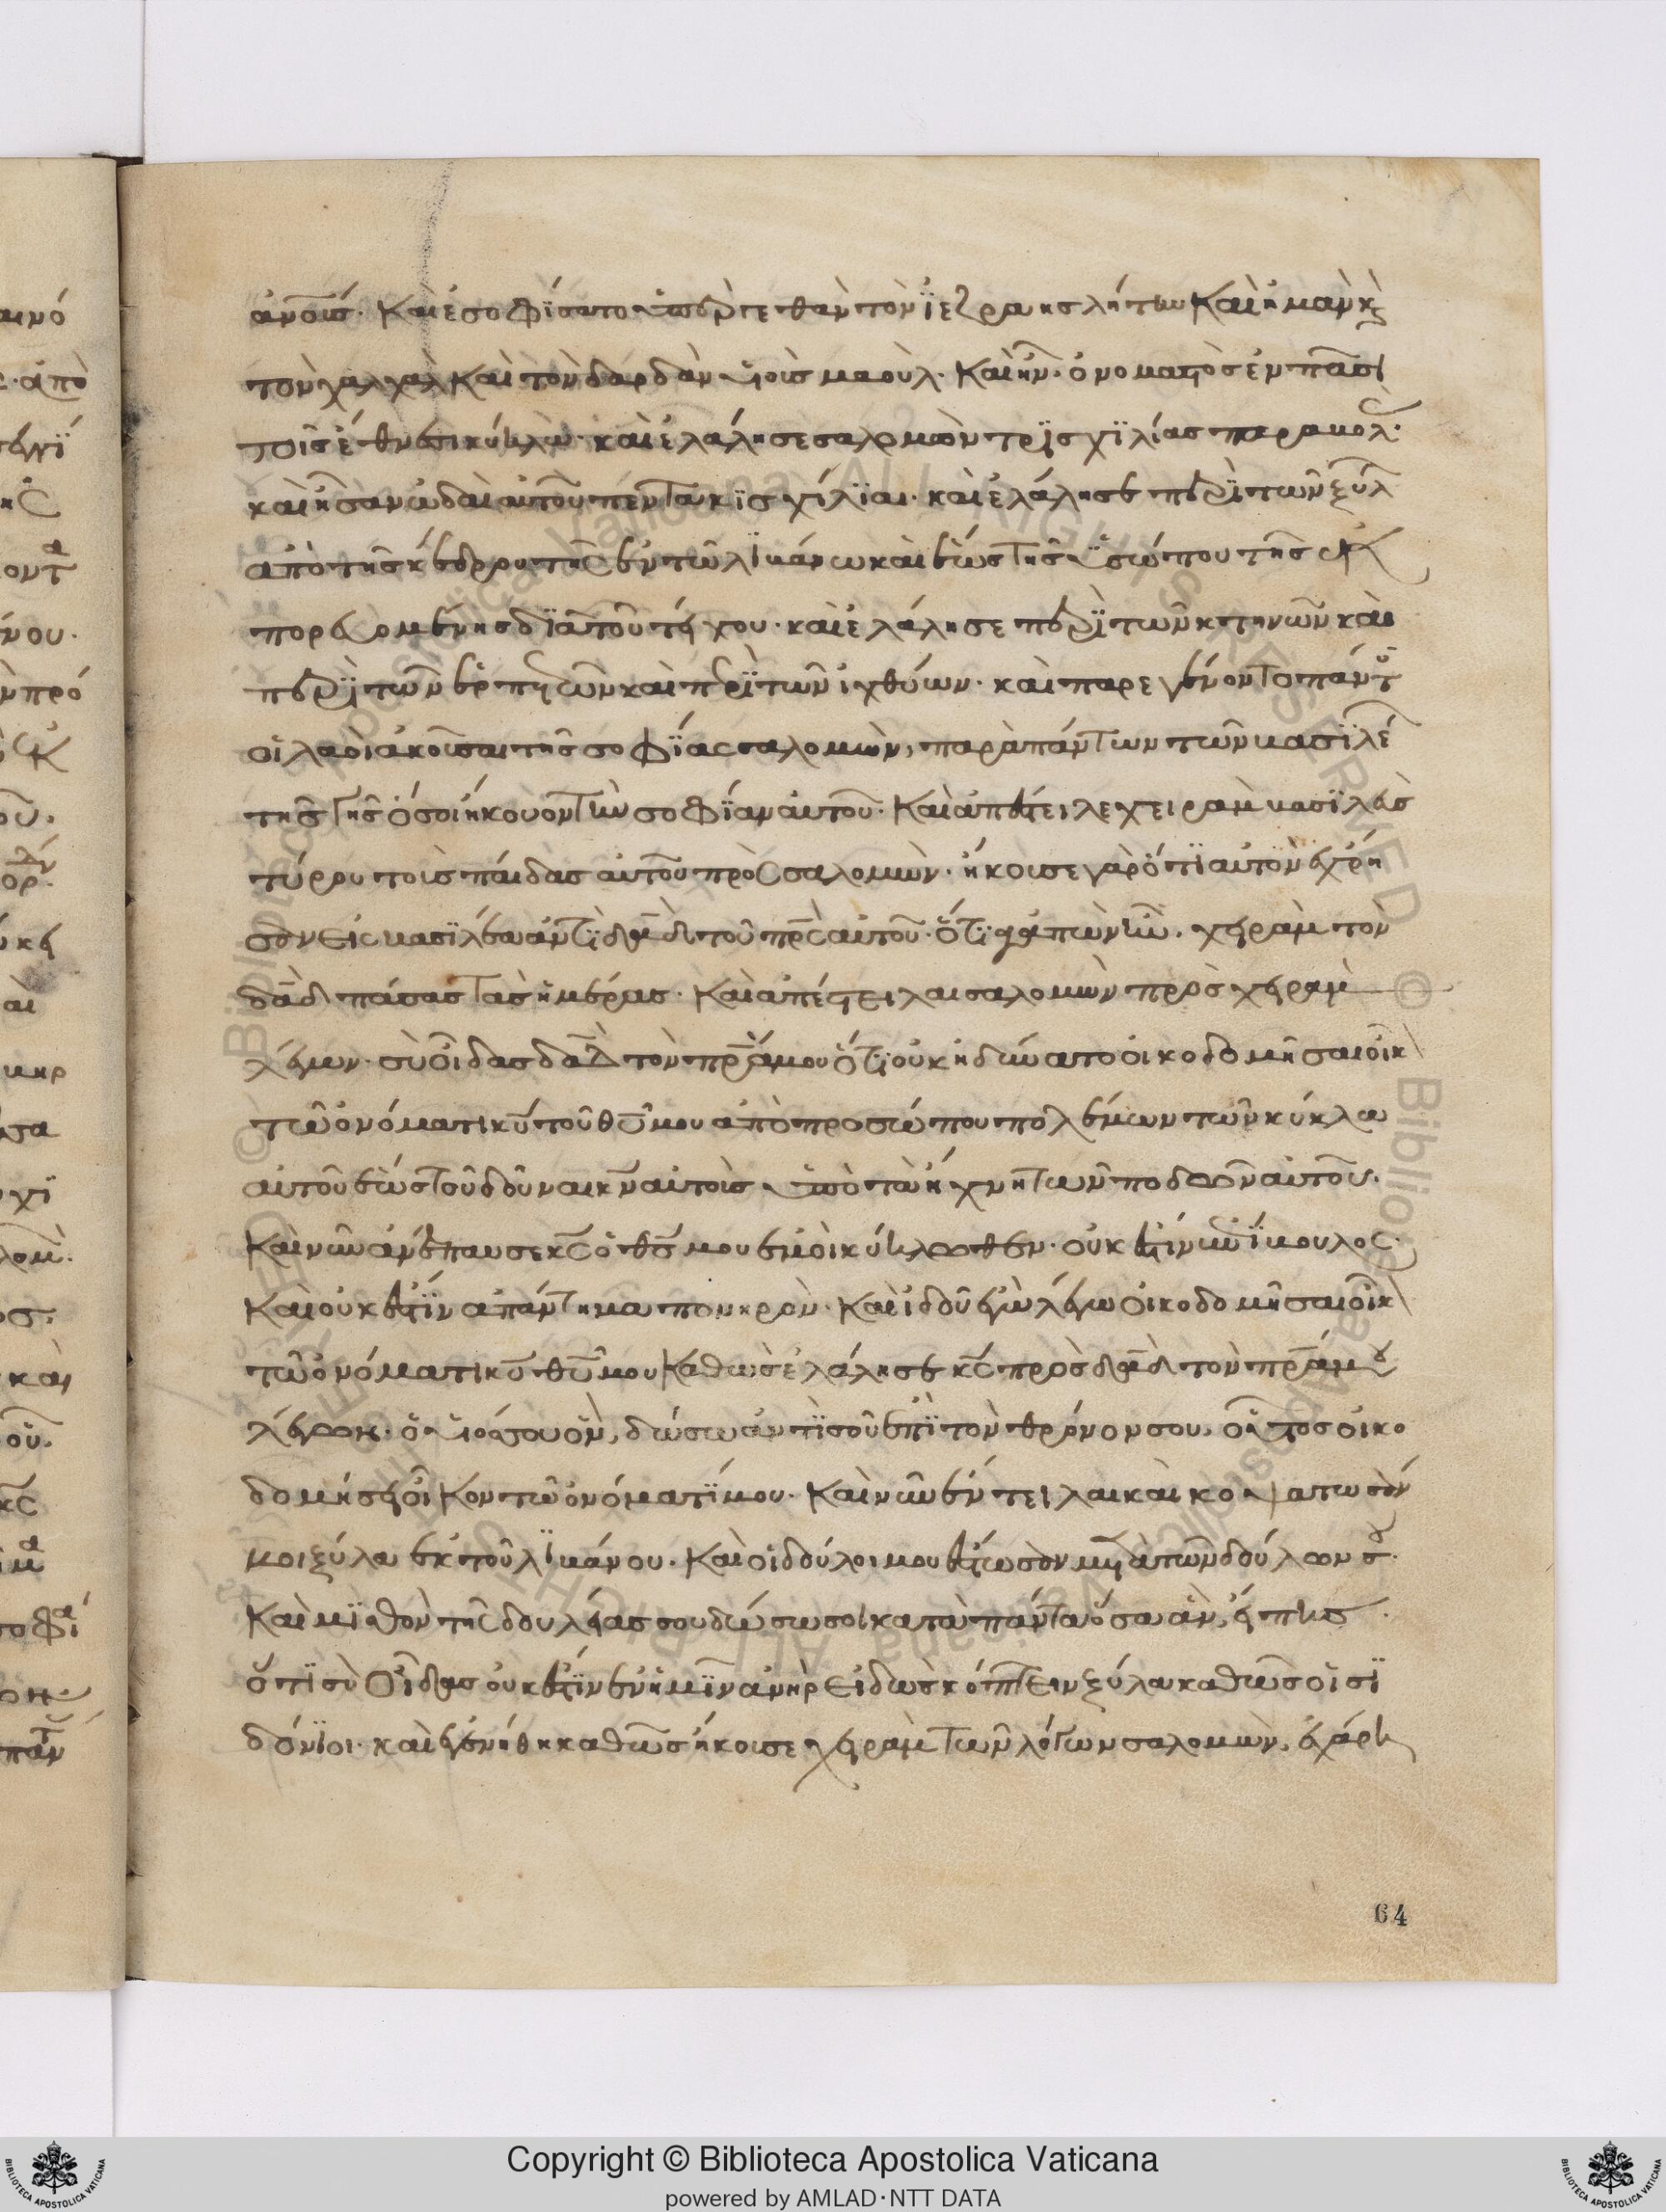 ἀνουσ. Καὶ ἐσοφίσατο ὑπὲρ τεθὰν τὸν ϊεζραησλήτην Καὶ ἠμὰν κὶ
τὸν χαλχαλ Καὶ τὸν δαρδὰν υἱοὺς μαουλ. Καὶ ἦν ὀνομαστὸς ἐν πᾶσι
τοῖς ἔθνεσι κύκλω. καὶ ἐλάλησε σαλομὼν τρϊσχϊλίας παραβολ.
καὶ ἦσαν ὠδαὶ αὐτοῦ πεντακϊσχίλϊαι. καὶ ἐλάλησε περὶ τῶν ξύλ
ἀπὸ τῆς κέδρου τῆς ἐν τῶ λϊβάνω καὶ ἕως τῆς ὑσώπου τῆς ἐκ
πορευομένης δϊὰ τοῦ τείχου. καὶ ἐλάλησε περὶ τῶν κτηνῶν καὶ
περὶ τῶν ἑρπετῶν καὶ περὶ τῶν ἰχθύων. καὶ παρεγένοντο πάντ
οἱ λαοὶ ἀκοῦσαι τῆς σοφΐας σαλομὼν, παρὰ πάντων τῶν βασϊλέ
τῆς γῆς ὅσοι ἤκουον τὴν σοφΐαν αὐτοῦ. Καὶ ἀπέστειλε χειρὰμ βασϊλεὺς
τύρου τοὺς παῖδας αὐτοῦ πρὸς σαλομὼν. ἤκουσε γὰρ ὅτϊ αὐτὸν ἔχρη
σαν εἰς βασϊλέα ἀντὶ δαδ τοῦ πρς αὐτοῦ. ὅτι ἀγαπῶν ἦν χειρὰμ τὸν
δαδ πάσας τὰς ἡμέρας. Καὶ ἀπέστειλαι σαλομὼν πρὸς χειραμ
λέγων. σὺ οἶδας δαδ τὸν πρα μου ὅτι οὐκ ἠδύνατο οἰκοδομῆσαι οἶκ
τῶ ὀνόματι κυ τοῦ θυ μου ἀπὸ προσώπου πολέμων τῶν κύκλω
αὐτοῦ ἕως τοῦ δοῦναι κν αὐτοὺς ὑπὸ τὰ ἤχνη τῶν ποδῶν αὐτοῦ.
Καὶ νῦν ἀνέπαυσε κς ὁ θς μου ἐμοὶ κύκλωθεν. οὐκ ἔστιν ἐπίβουλος.
Καὶ οὐκ ἔστϊν ἀπάντημα πονηρὸν. Καὶ ἰδοῦ ἐγὼ λέγω οἰκοδομῆσαι οἶκ
τῶ ὀνόματι κυ θυ μου Καθὼς ἐλάλησε κς πρὸς δαδ τὸν πρα μου
λέγων. ὁ υἱός σου ὃν, δώσω ἀντϊ σοῦ ἐπϊ τὸν θρόνον σου, οὗτος οἰκο
δομήσει οἶκον τῶ ὀνόματϊ μου. Καὶ νῦν ἔντειλαι καὶ κοψάτωσάν
μοι ξύλα ἐκ τοῦ λϊβάνου. Καὶ οἱ δοῦλοι μου ἔστωσαν μετὰ τῶν δούλων σου.
Καὶ μϊσθὸν τῆς δουλείας σου δώσω σοι κατὰ πάντα ὅσα ἂν, εἴπης.
ὅτϊ σὺ οἶδας οὐκ ἔστϊν ἐν ἡμῖν ἀνὴρ εἰδὼς κόπτειν ξύλα καθὼς οἱ σϊ
δόνϊοι. καὶ ἐγενήθη καθὼς ἤκουσε χειρὰμ τῶν λόγων σαλομὼν, ἐχάρη
64